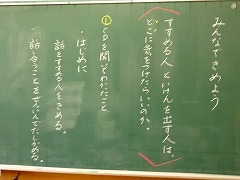 みんなできめよう
すすめる人といけんを出す人は、
どこに気をつけたらいいのか。
① CDを聞いてわかったこと
・はじめに
話をすすめる人をきめる。
話し合うことをぜんいんでたしかめる。